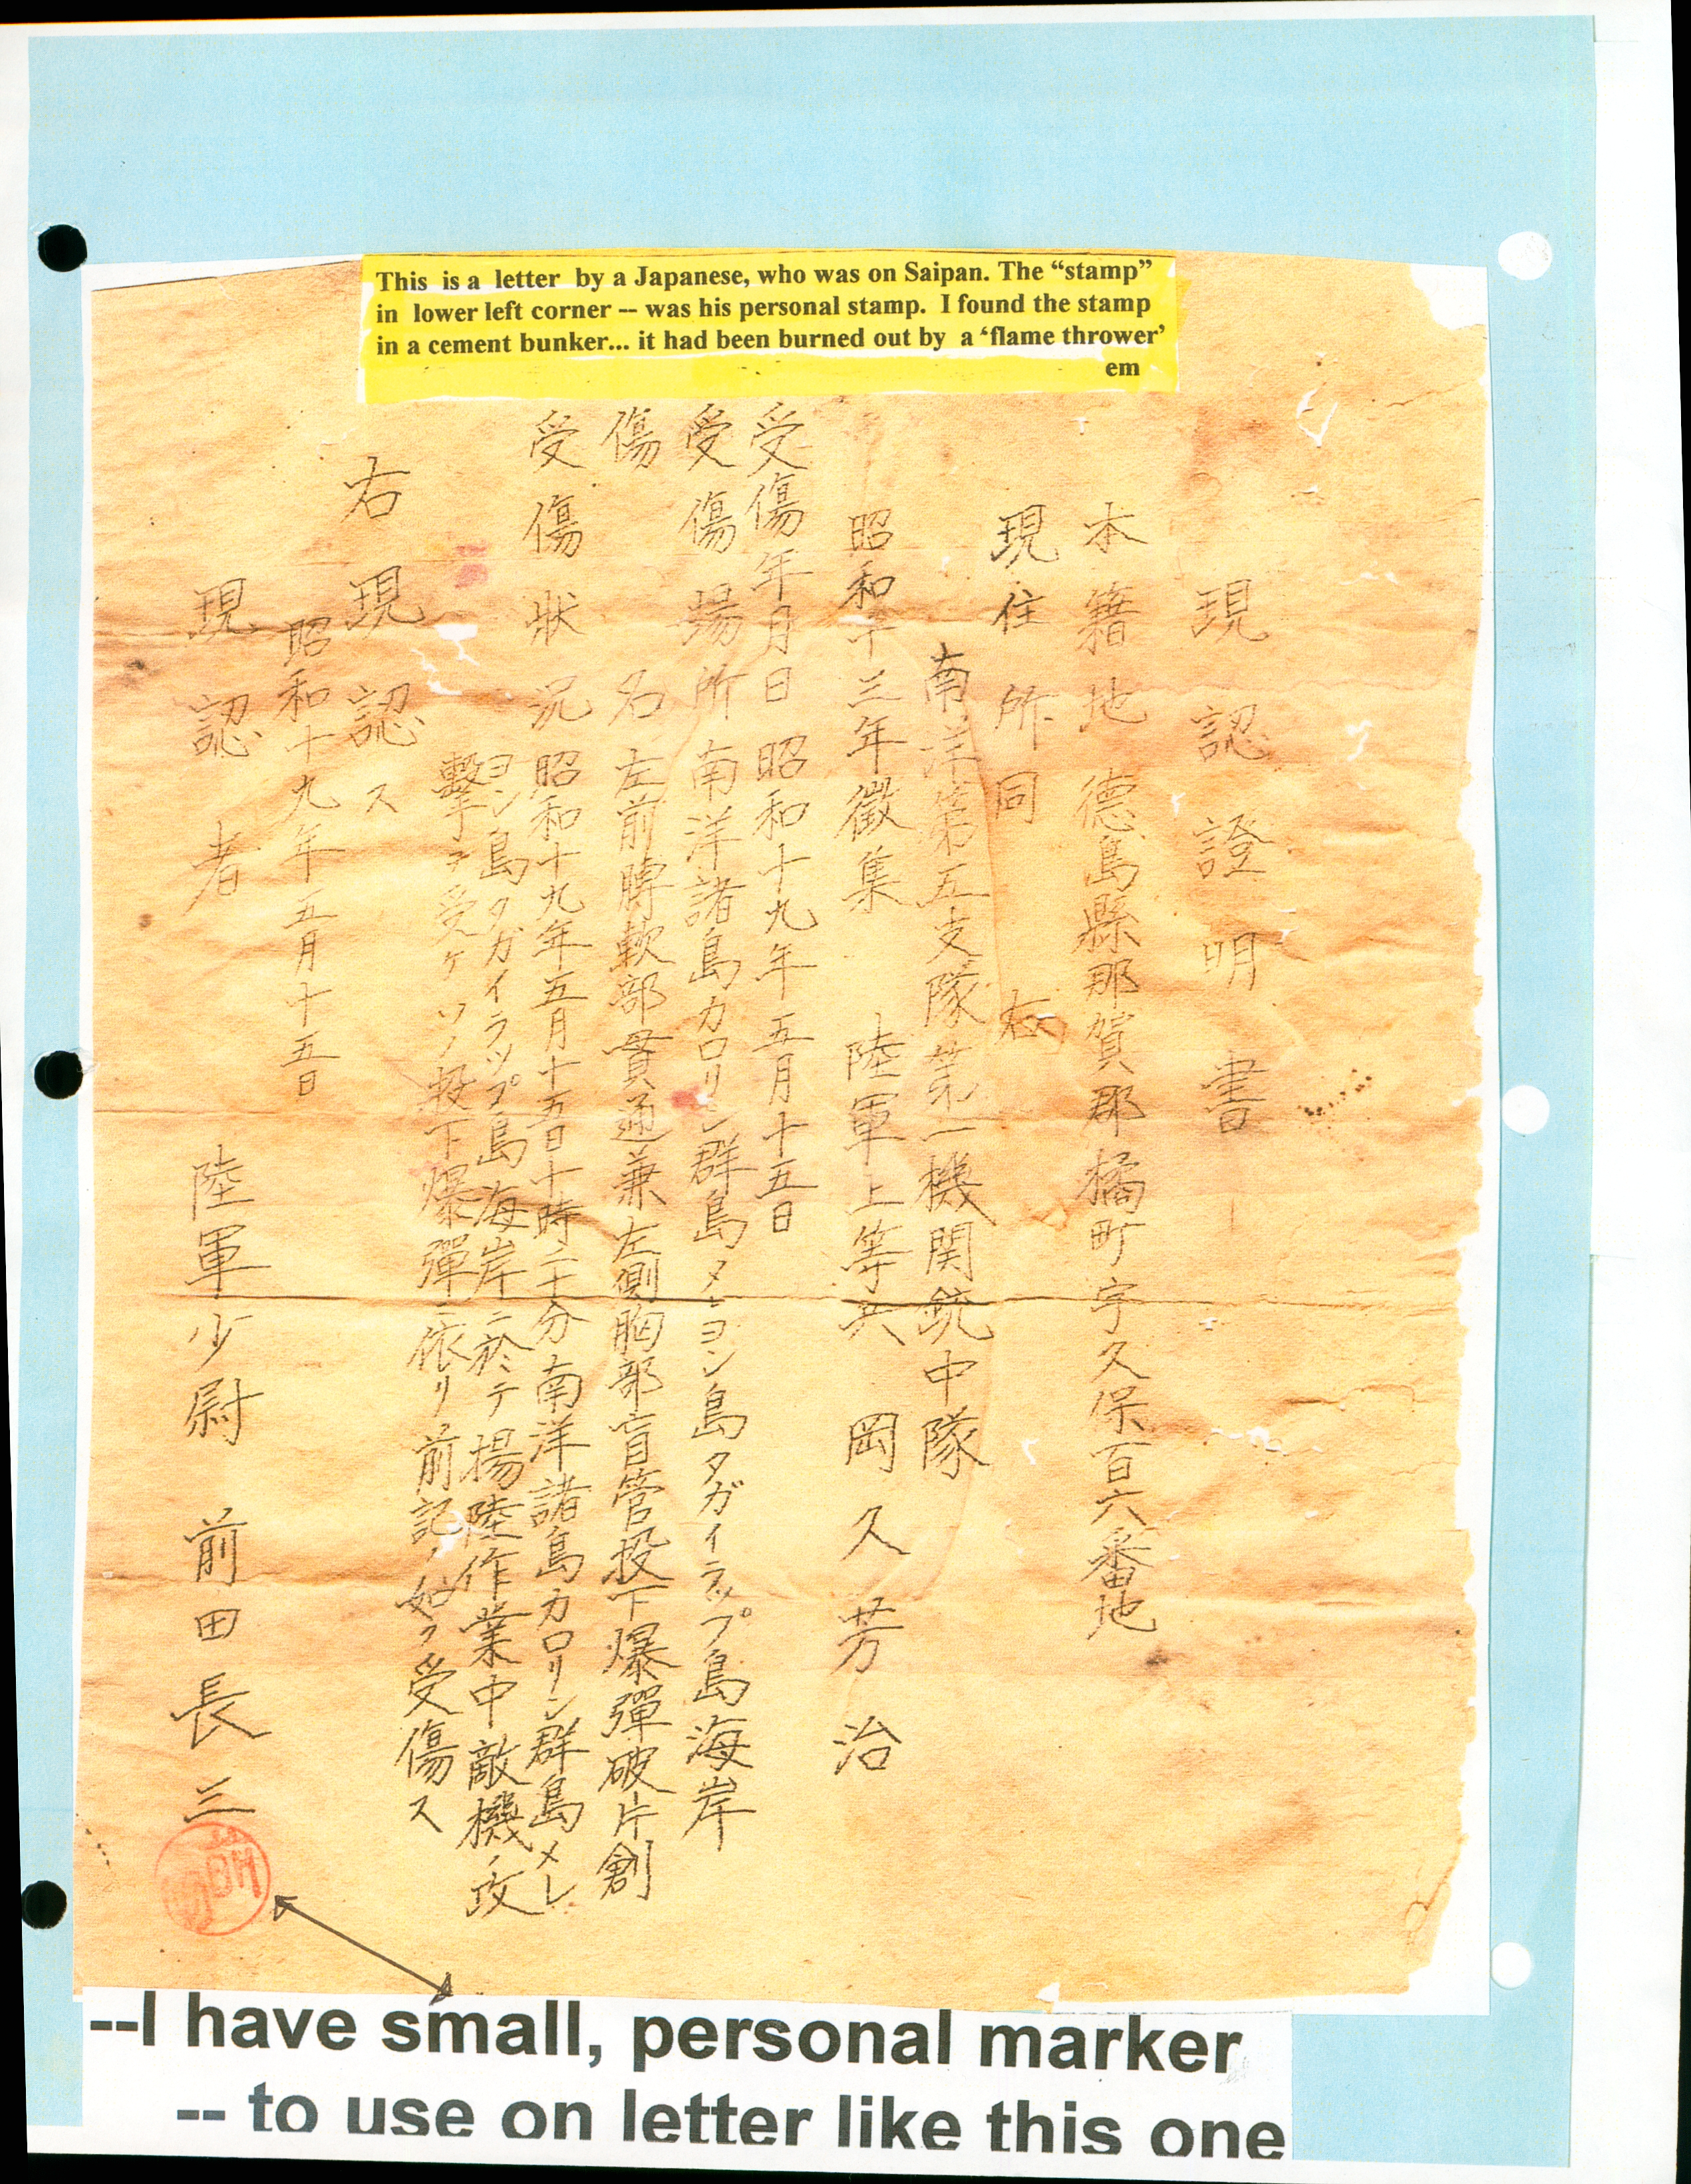 This is a letter by a Japanese, who was on Saipan. The “stamp”
in lower left corner -- was his personal stamp. I found the stamp
in a cement bunker... it had been burned out by a ‘flame thrower’
em
現認證明書
本籍地 德島縣那賀郡橘町字久保百六番地
現住所 同 右
南洋第五支隊第一機関銃中隊
昭和十三年徵集 陸軍上等兵 岡久芳治
受傷年月日 昭和十九年五月十五日
受傷場所 南洋諸島カロリン群島メレヨン島タガイラップ島海岸
傷名 左前膊軟部貫通兼左側胸部盲管投下爆彈破片創
受傷状況 昭和十九年五月十五日十時二十分南洋諸島カロリン群島メレ
ヨン島タガイラップ島海岸ニ於テ揚陸作業中敵機ノ攻
擊ヲ受ケソノ投下爆彈ニ依リ前記ノ如ク受傷ス
右現認ス
昭和十九年五月十五日
現認者 陸軍少尉 前田長三
--I have small, personal marker
-- to use on letter like this one